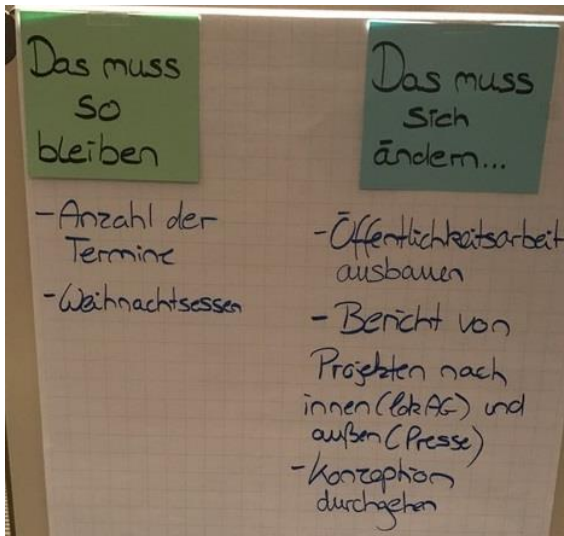 Das muss
so
bleiben
- Anzahl der
Termine
- Weihnachtsessen
Das muss
sich
ändern...
- Öffentlichkeitsarbeit
ausbauen
- Bericht von
Projekten nach
innen (lok AG) und
außen (Presse)
- Konzeption
durchgehen